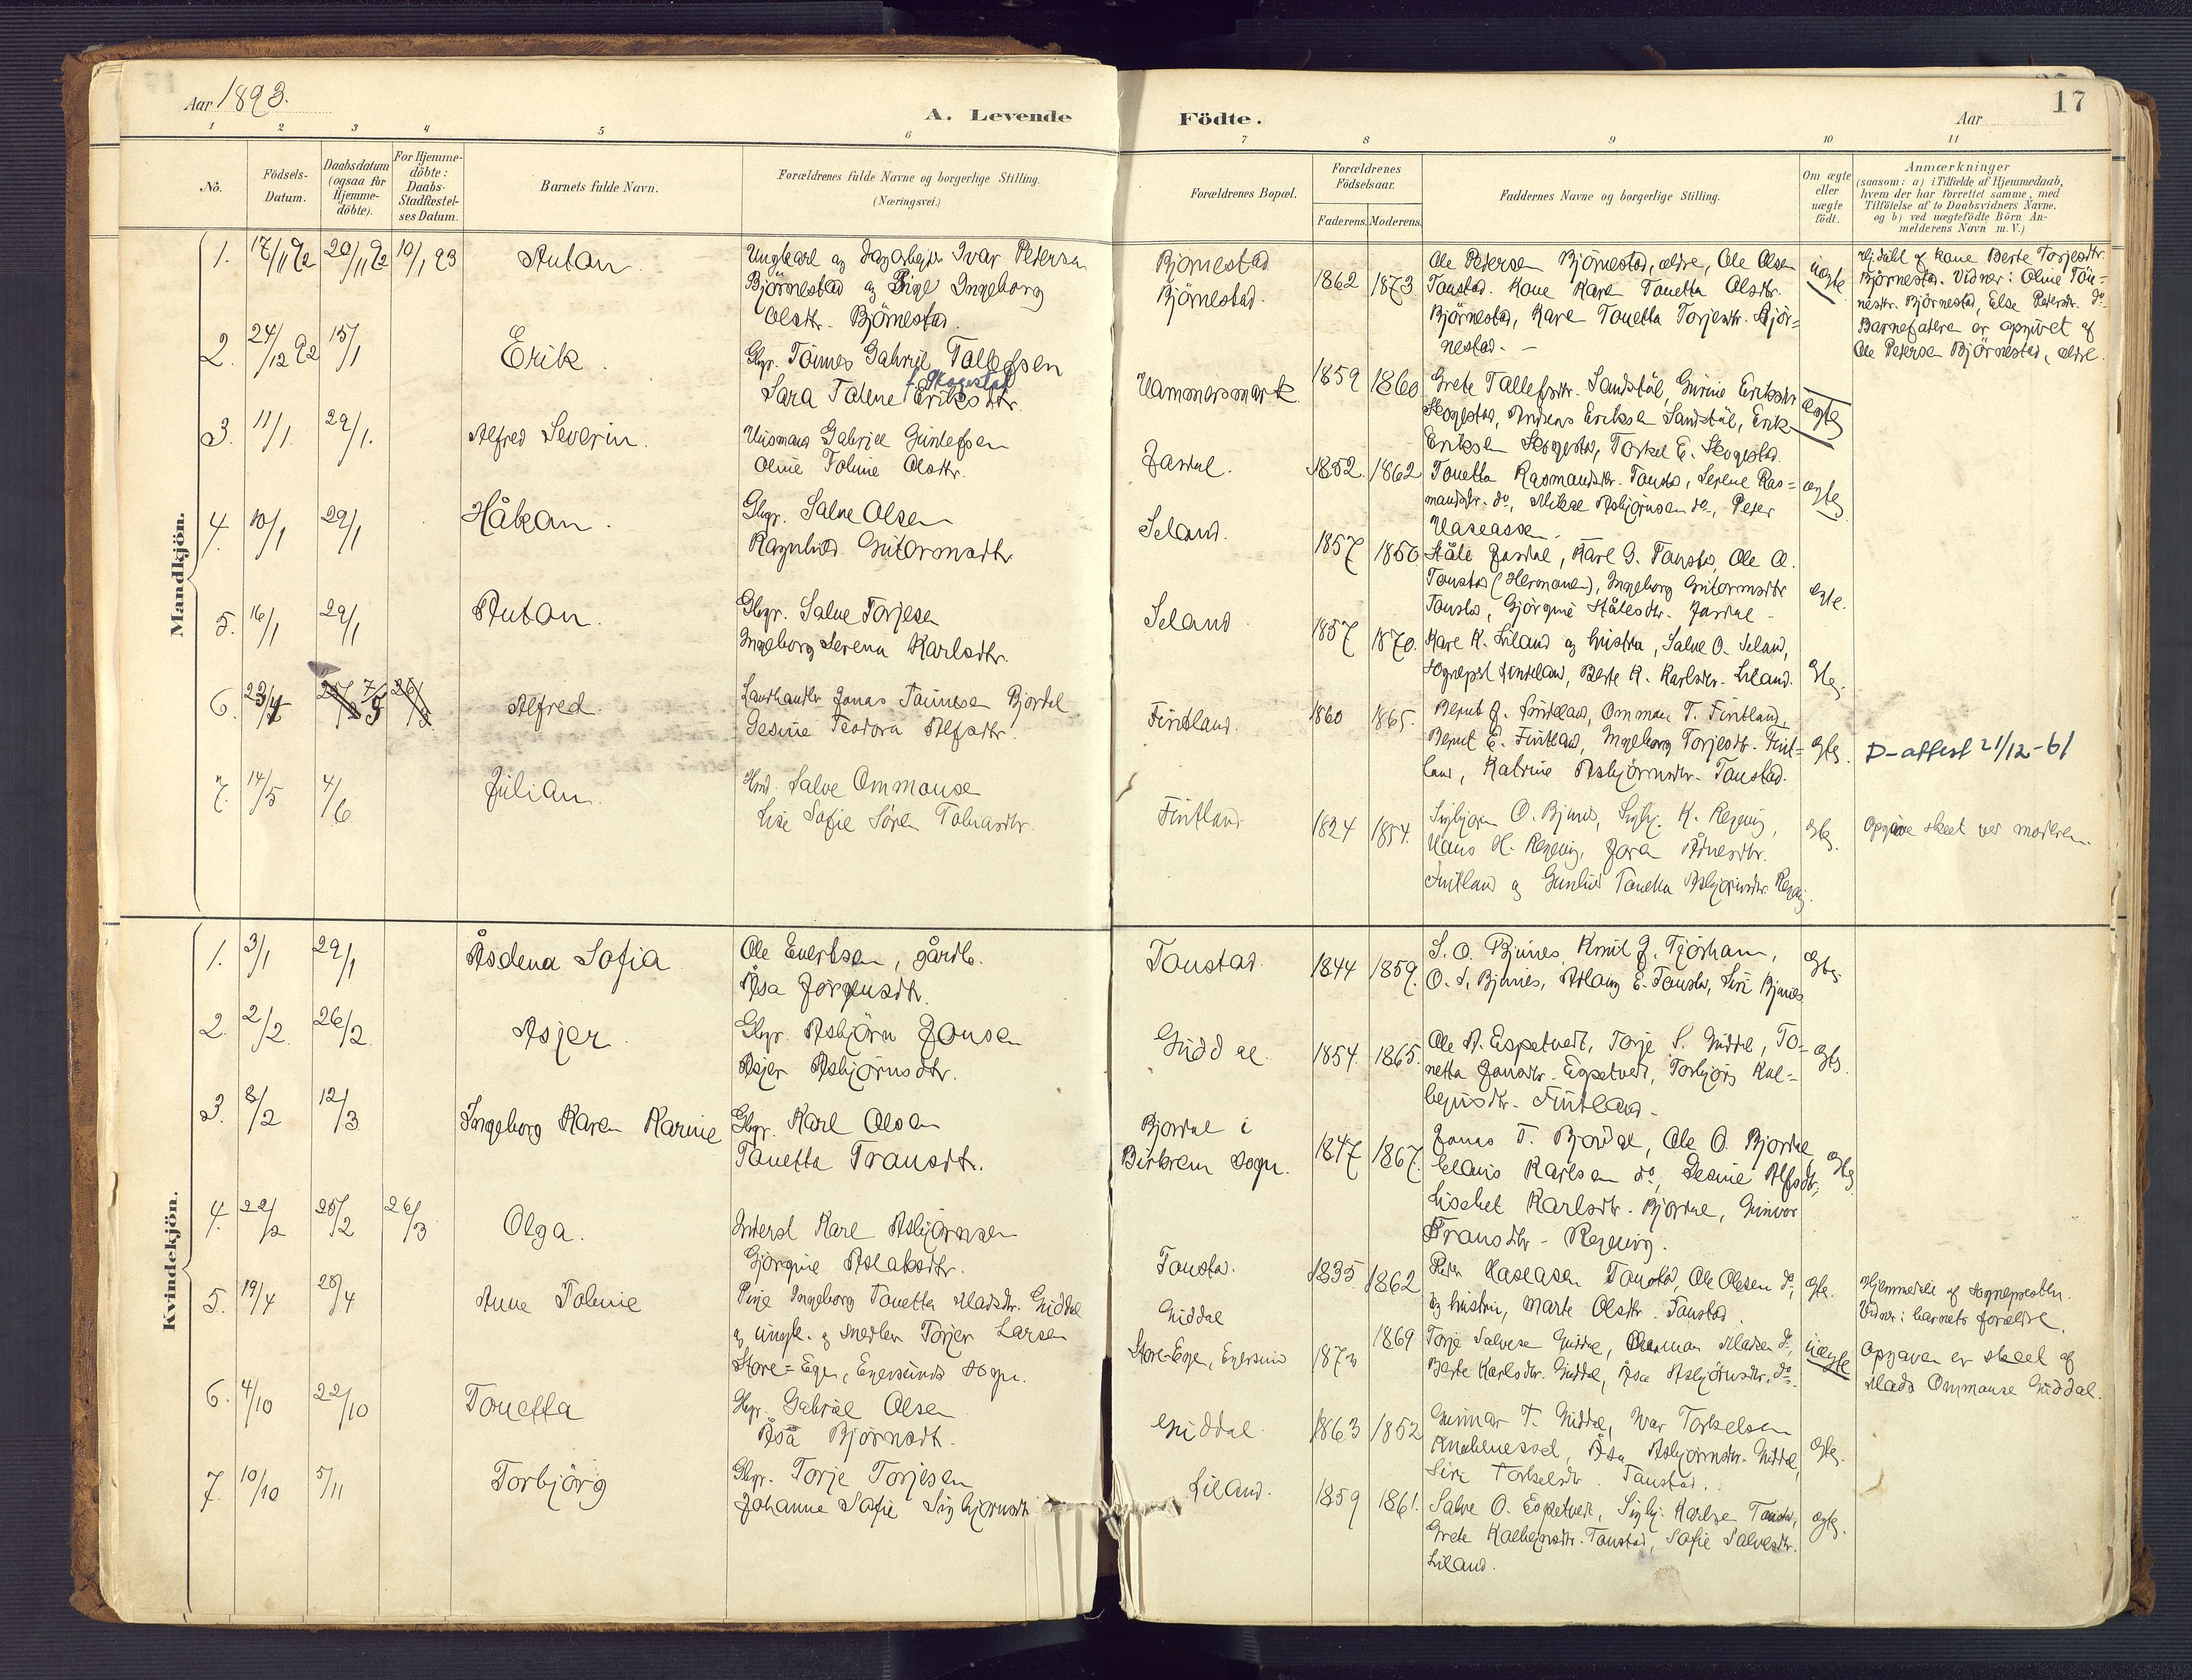 Aar 1893.
A. Levende Födte.
Aar
17
1 2 3 4 5 6 7 8 9 10 11
No.
Födsels-Datum.
Daabsdatum (ogsaa for Hjemme-döbte).
For Hjemme-döbte: Daabs-Stadfæstel-ses Datum.
Barnets fulde Navn.
Forældrenes fulde Navne og borgerlige Stilling.
(Næringsvei.)
Forældrenes Bopæl.
Forældrenes Födselsaar.
Faderens. Moderens.
Faddernes Navne og borgerlige Stilling.
Om ægte eller uægte födt.
Anmærkninger
(saasom: a) i Tilfælde af Hjemmedaab,
hvem der har forrettet samme, med
Tilföielse af to Daabsvidners Navne.
og b) ved uægtefödte Börn An-
melderens Navn m. V.)
Mandkjön.
1. 17/11 92 20/11 92 10/1 93 Antan
Ungkarl og Ivar Petersen
Björnestad og Pige Ingeborg
Olsdtr. Björnestad.
Bjornestad
Björnestad.
1862 1873.
Ole Petersen Björnestad, ældre, Ole Olsen
Tonstad. Kone Karen Tonetta Olsdtr.
Björnestad, Karen Tonetta Torjesdtr. Björ=
nestad. -
uægte
Hj.døbt af kone Berte Torjesdtr.
Björnestad. Vidner: Oline Tön=
nesdtr. Björnestad, Elsa Petersdtr. do.
Barnefaderen er opgivet af
Ole Petersen Björnestad, ældre.
2. 24/12 92 15/1 Erik.
Gbgr. Tönnes Gabriel Tallefsen
f. Skogestad
Sara Talene Eriksdtr.
Hammersmark
1859 1860
Grete Tallefsdtr. Sandstöl, Gurine Eriksdtr
Skogestad, Andreas Eriksen Sandstöl, Erik
Eriksen Skogestad, Torkel E. Skogestad.
ægte
3. 11/1. 29/1. Alfred Severin.
Husmand Gabriel Gunlefsen
Oline Toline Olsdtr.
Josdal.
1852. 1862
Tonetta Rasmusdtr. Tonstad, Serene Ras=
musdtr. do, Mikal Asbjörnsen do, Peter
Haaeassen.
ægte
4. 10/1 29/1 Håkan.
Gbgr. Salve Olsen
Ragnhild Gutormsdtr
Seland.
1857 1850
Ståle Josdal, Karl G. Tonstad, Ole O.
Tonstad (Hermonen), Ingeborg Gutormsdtr
Tonstad, Gjörgine Ståledtr. Josdal -
ægte.
5. 16/1 29/1 Antan.
Gbgr. Salve Torjesen
Ingeborg Serena Karlsdtr.
Seland
1857 1870.
Karl K. Liland og hustru, Salve O. Seland,
Sogneprst Lindeland, Berte K. Karlsdtr. Liland.
ægte.
6. 23/4 7/5 Alfred.
Landhandler Jonas Tönnesen Bjordal
Gesine Teodora Alfsdtr.
Fintland.
1860 1865.
Bernt J. Lindeland, Ommon T. Fintland,
Bernt E. Fintland, Ingeborg Torjesdtr. Fint=
land, Katrine Asbjörnsdtr. Tonstad.
ægte.
D-attest 21/12-61
7. 14/5 4/6 Julian.
Hmd. Salve Ommonsen
Lise Sofie Sören Tobiasdtr.
Fintland
1824 1854.
Sigbjorn O. Bjunes, Sigbj. K. Regevig,
Hans H. Regevig, Jora Ånesdtr.
Fintland og Gunhild Tonetta Asbjörnsdtr. Regevig.
ægte.
Opgave skeet ved moderen.
Kvindekjön.
1. 3/1 29/1 Åsdena Sofia
Ole Evertsen, gårdb.
Åsa Jörgensdtr.
Tonstad.
1844 1859.
S. O. Bjunes, Knut J. Tjörhom,
O. S. Bjunes, Aslaug E. Tonstad, Siri Bjunes
ægte.
2. 2/2. 26/2. Asjer.
Gbgr. Asbjörn Jonsen
Asjer Asbjörnsdtr.
Guddal.
1854. 1865.
Ole A. Espetvedt, Torje S. Guddal, To=
netta Jonsdtr. Espetvedt, Torbjörg Kol=
bejnsdtr. Fintland -
ægte.
3. 8/2 12/3 Ingeborg Karen Karine
Gbgr. Karl Olsen
Tonetta Transdtr.
Bjordal i
Birkrem sogn.
1847 1867.
Jonas T. Bjordal, Ole O. Bjordal
Elaus Karlsen do, Gesine Alfsdtr,
Lisebet Karlsdtr. Bjordal, Gunvor
Transdtr - Regevig.
ægte.
4. 22/2 25/2 26/3 Olga.
Inderst Karl Asbjörnsen
Gjörgine Aslaksdtr.
Tonstad.
1835 1862
Peter Haaeasen Tonstad, Ole Olesen do,
og hustru, Marte Olsdtr. Tonstad.
ægte.
Hjemmedöbt af sognepresten.
Vidner: barnets forældre.
5. 19/4 28/4 Anne Toline
Pige Ingeborg Tonetta Madsdtr. Guddal
og ungk. og snedker Torjer Larsen
Store=Ege, Egersunds sogn.
Guddal
Store-Ege, Egersund
1869
Torje Salvesen Guddal, Ommon Madsen do,
Berte Karlsdtr. Guddal, Åsa Asbjörnsdtr. do.
uægte
Opgaven er skeet af
Mads Ommonsen Guddal.
6. 4/10 22/10 Tonetta
Gbgr. Gabriel Olsen
Åsa Björnsdtr.
Guddal.
1863 1852
Gunnar T. Guddal, Ivar Torkelsen
Knabenessel, Åsa Asbjörnsdtr. Guddal,
Siri Torkelsdtr. Tonstad.
ægte.
7. 10/10 5/11 Torbjörg
Gbgr. Torje Torjesen
Johanne Sofie Sigbjørnsdtr
Liland.
1859 1861.
Salve O. Espetvedt, Sigbj. Karlsen Tonstad,
Grete Kolbejnsdtr. Tonstad, Sofie Salvesdtr.
Liland.
ægte.